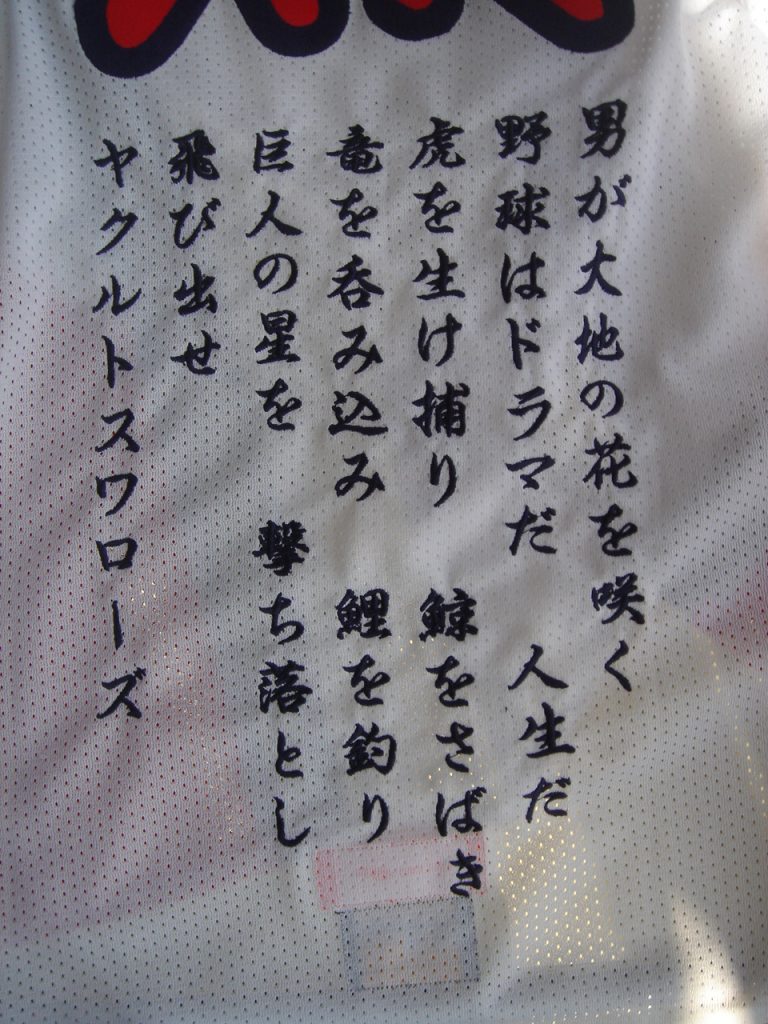 男が大地の花を咲く
野球はドラマだ 人生だ
虎を生け捕り 鯨をさばき
竜を呑み込み 鯉を釣り
巨人の星を 撃ち落とし
飛び出せ
ヤクルトスワローズ